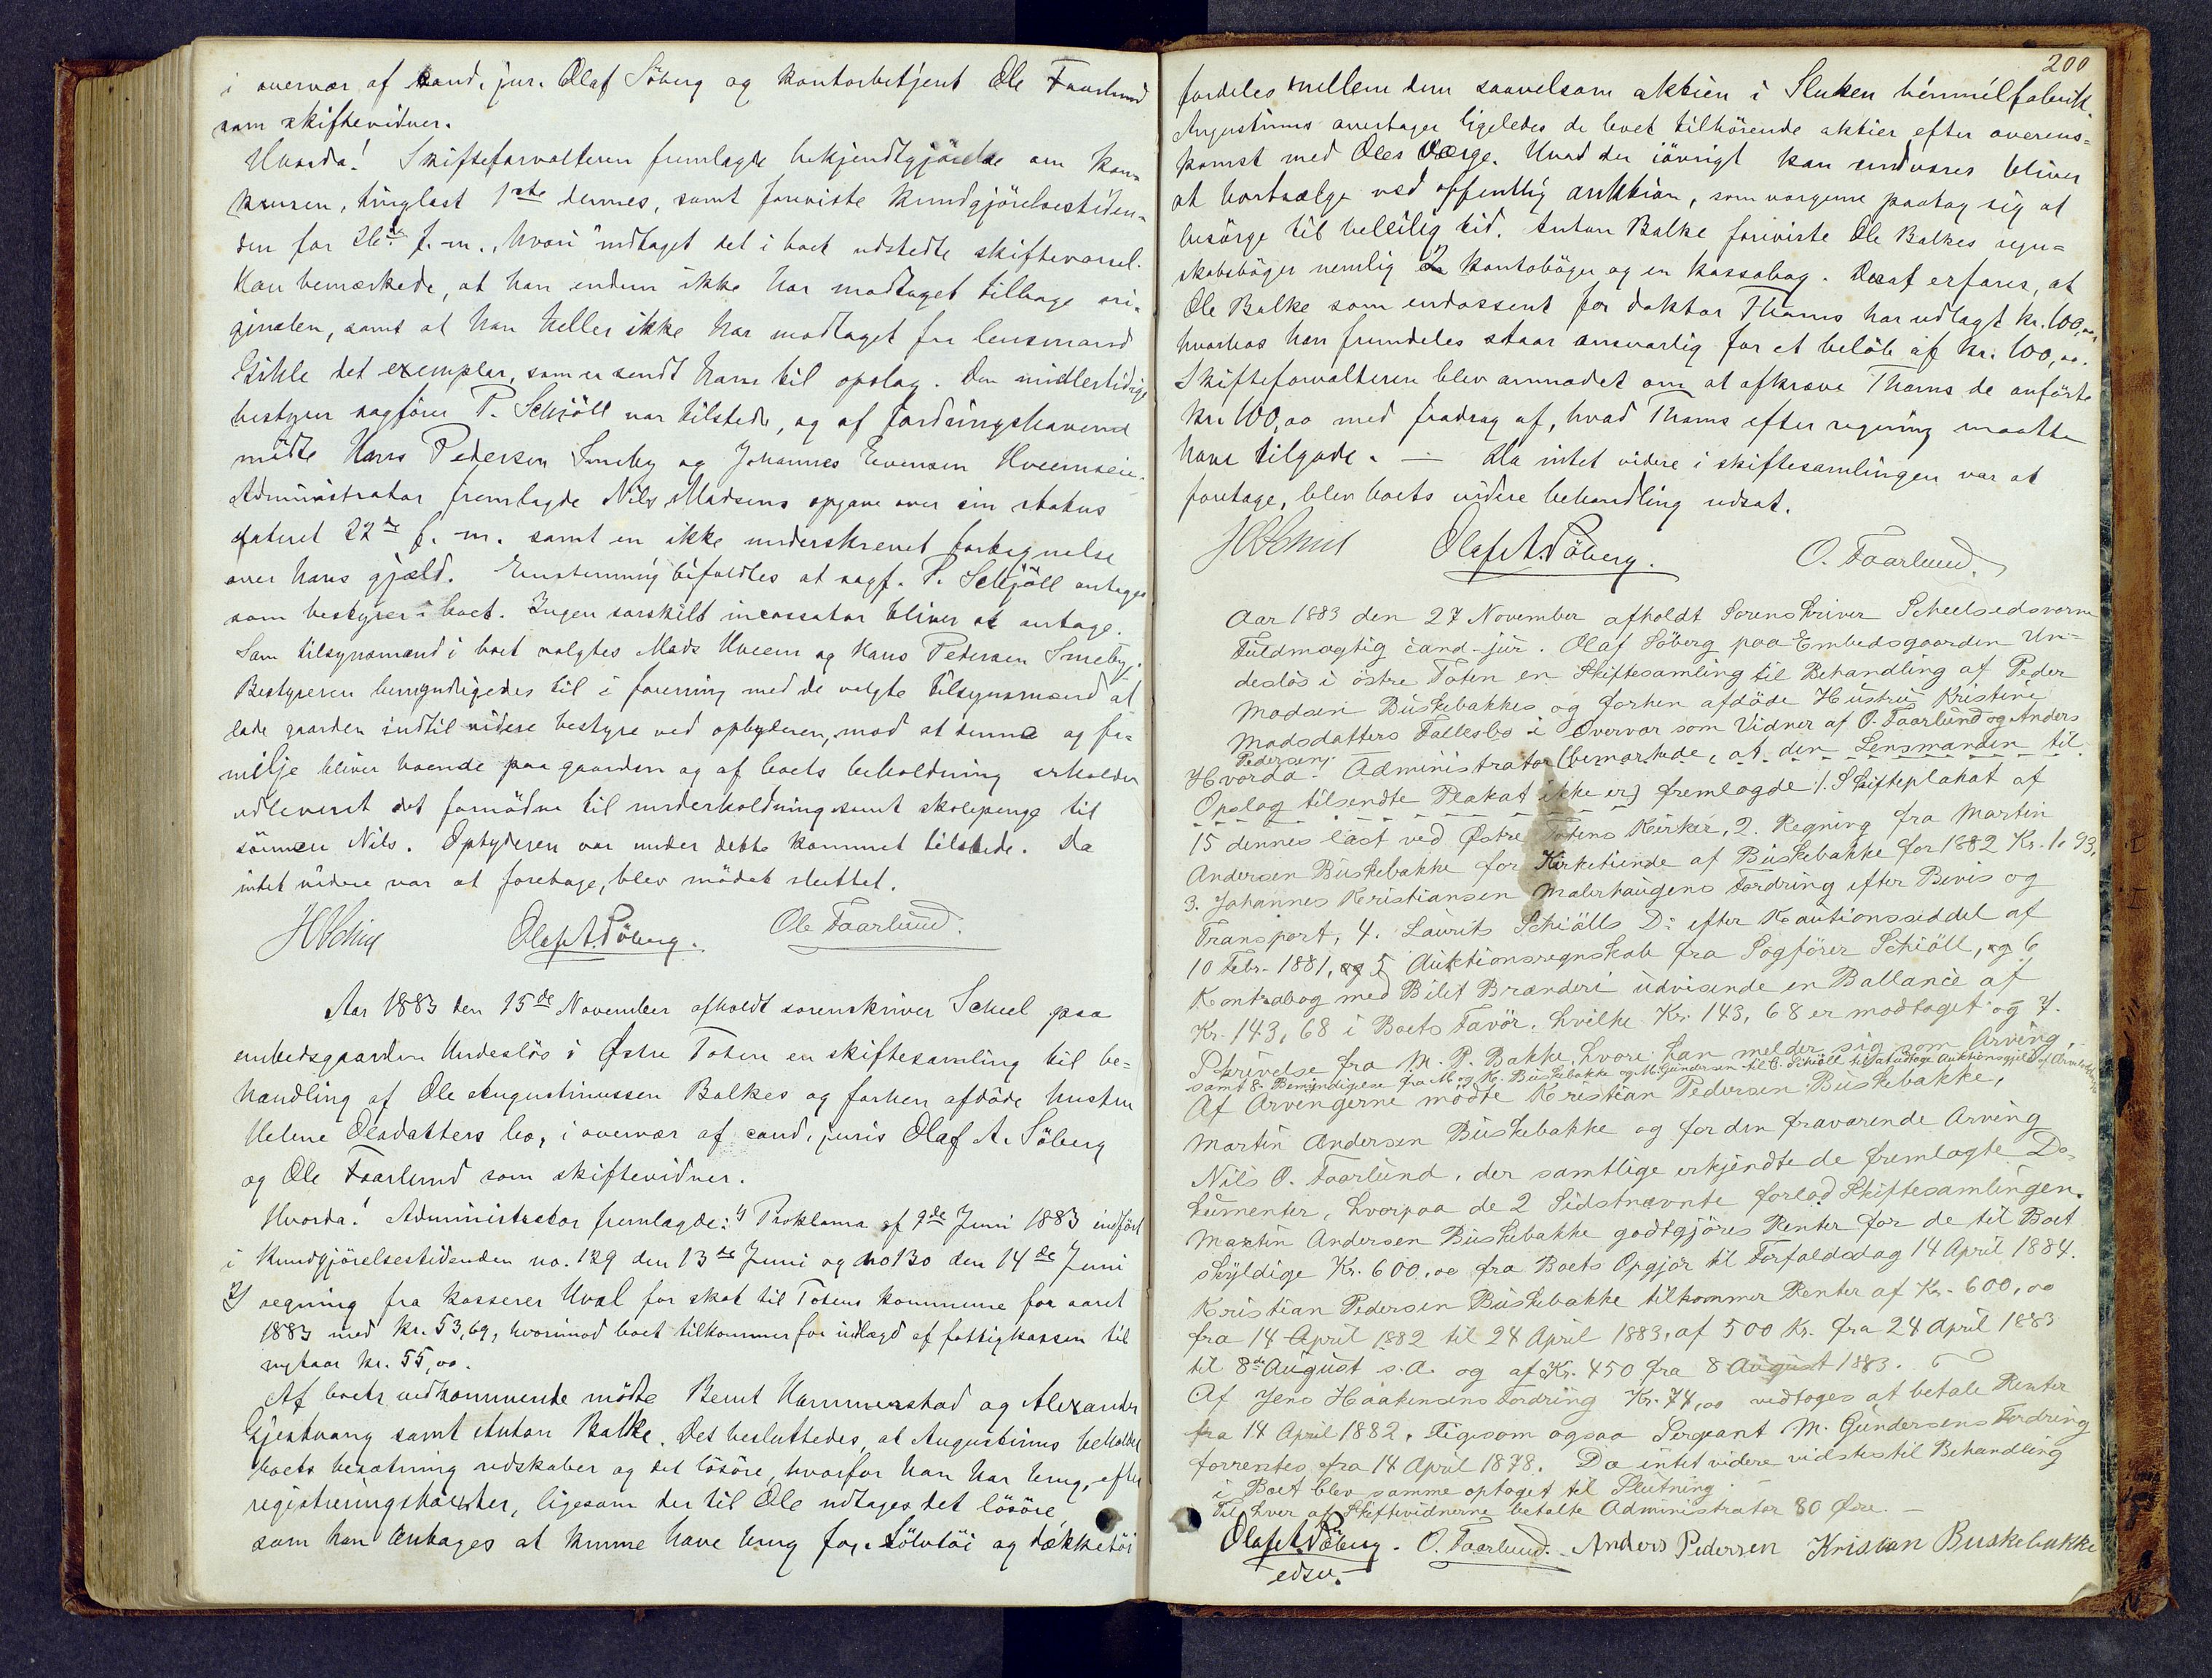 i overvær af cand. jur. Olaf Söberg og kontorbetjent Ole Faarlund
som skiftevidner.
Hvorda! Skifteforvalteren fremlagde bekjendtgjörelse om kon-
kursen, tinglæst 1ste dennes, samt foreviste kundgjörelsestiden-
den for 26de f. m., hvori indtaget det i boet udstedte skiftevarsel.
Han bemærkede, at han endnu ikke har modtaget tilbage ori-
ginalen, samt at han heller ikke har modtaget fra lensmand
Gihle det exemplar, som er sendt ham til opslag. Den midlertidige
bestyrer sagförer P. Schjöll var tilstede, og af fordringshaverne
mödte Hans Pedersen Smeby og Johannes Evensen Hveemseie.
Administrator fremlagde Nils Madsens opgave over sin status
dateret 22de f. m. samt en ikke underskrevet fortegnelse
over hans gjæld. Enstemmig bifaldtes at sagf. P. Schjöll antages
som bestyrer i boet. Ingen særskilt incassator bliver at antage.
Som tilsynsmænd i boet valgtes Mads Hveem og Hans Pedersen Smeby.
Bestyreren bemyndigedes til i forening med de valgte tilsynsmænd at
lade gaarden indtil videre bestyre ved opbyderen, mod at denne og fa-
milje bliver boende paa gaarden og af boets beholdning erholder
udleveret det fornödne til underholdning samt skolepenge til
sönnen Nils. Opbyderen var under dette kommet tilstede. Da
intet videre var at foretage, blev mödet sluttet.
HScheel Olaf A. Söberg. Ole Faarlund.
Aar 1883 den 15de November afholdt sorenskriver Scheel paa
embedsgaarden Undeslös i Østre Toten en skiftesamling til be-
handling af Ole Augustinussen Balkes og forhen afdöde hustru
Helene Olsdatters bo, i overvær af cand. juris Olaf A. Söberg
og Ole Faarlund som skiftevidner.
Hvorda! Administrator fremlagde: 1) Proklama af 9de Juni 1883 indfört
i kundgjörelsestidenden no. 129 den 13de Juni og no 130 den 14de Juni
2) regning fra kasserer Hval for skat til Totens kommune for aaret
1883 med kr. 53,69, hvorimod boet tilkommer for indlagd af fattigkassen til
nytaar kr. 55,00.
Af boets vedkommende mödte Bernt Hammerstad og Alexander
Gjestvang samt Anton Balke. Det besluttedes, at Augustinus beholder
boets besætning redskaber og det lösöre, hvorfor han har brug, efter
registreringstaxter, ligesom der til Ole udtages det lösöre
som han antages at kunne have brug for. Sölvtöi og dækketöi
200
fordeles mellem dem saavelsom aktien i Sluken benmelfabrik.
Augustinus overtager ligeledes de boet tilhörende aktier efter overens-
komst med Oles værge. Hvad der iövrigt kan undværes bliver
at bortsælge ved offentlig auktion, som værgerne paatog sig at
besörge til beleilig tid. Anton Balke foreviste Ole Balkes regn-
skabsböger nemlig 2 kontoböger og en kassabog. Deraf erfares, at
Ole Balke som endossent for doktor Thams har udlagt kr. 100,00,
hvorhos han fremdeles staar ansvarlig for et belöb af kr. 100,00.
Skifteforvalteren blev anmodet om at afkræve Thams de anförte
kr. 100,00 med fradrag af, hvad Thams efter regning maatte
have tilgode. — Da intet videre i skiftesamlingen var at
foretage, blev boets videre behandling udsat.
HScheel Olaf A. Söberg. O. Faarlund.
Aar 1883 den 27 November afholdt Sorenskriver Scheels edsvorne
Fuldmægtig cand-jur. Olaf Söberg paa Embedsgaarden Un-
deslös i östre Toten en Skiftesamling til Behandling af Peder
Madsen Büskebakkes og forhen afdöde Hustru Kristine
Madsdatters Fællesbo i Overvær som Vidner af O. Faarlund og Anders
Pedersen.
Hvorda! Administrator (bemærkede, at den Lensmanden til
Opslag tilsendte Plakat ikke er) fremlagde 1. Skifteplakat af
15 dennes læst ved Østre Totens Kirke, 2. Regning fra Martin
Andersen Büskebakke for Kirketiende af Büskebakke for 1882 Kr. 1,93,
3. Johannes Kristiansen Malerhaugens Fordring efter Bevis og
Transport, 4. Laurits Schiölls Do: efter Kautionsseddel af
10 Febr. 1881, og 5 Auktionsregnskab fra Sagförer Schiöll, og 6
Kontrabog med Bilit Brænderi udvisende en Ballance af
Kr. 143,68 i Boets Favör, hvilke Kr. 143,68 er modtaget og 7.
Skrivelse fra M. P. Bakke, hvori han melder sig som Arving,
samt 8. Bemyndigelse fra M. og K. Büskebakke og M. Gundersen til Schiöll til at udtage Auktionsgjæld
Af Arvingerne mödte Kristian Pedersen Büskebakke,
Martin Andersen Büskebakke og for den fraværende Arving
Nils O. Faarlund, der samtlige erkjendte de fremlagte Do-
kumenter, hvorpaa de 2 Sidstnævnte forlod Skiftesamlingen.
Martin Andersen Büskebakke godtgjöres Renter for de til Boet
skyldige Kr. 600,00 fra Boets Opgjör til Forfaldsdag 14 April 1884.
Kristian Pedersen Büskebakke tilkommer Renter af Kr. 600,00
fra 14 April 1882 til 24 April 1883, af 500 Kr. fra 24 April 1883
til 8de August s. A. og af Kr. 450 fra 8 August 1883.
Af Jens Haakensens Fordring Kr. 74,00 vedtoges at betale Renter
fra 14 April 1882, ligesom ogsaa Sergeant M. Gundersens Fordring
forrentes fra 14 April 1878. Da intet videre vidstes til Behandling
i Boet blev samme optaget til Slutning.
Til hver af Skiftevidnerne betalte Administrator 80 Øre.
Olaf A. Söberg. O. Faarlund. Anders Pedersen Kristian Buskebakke
edsv.